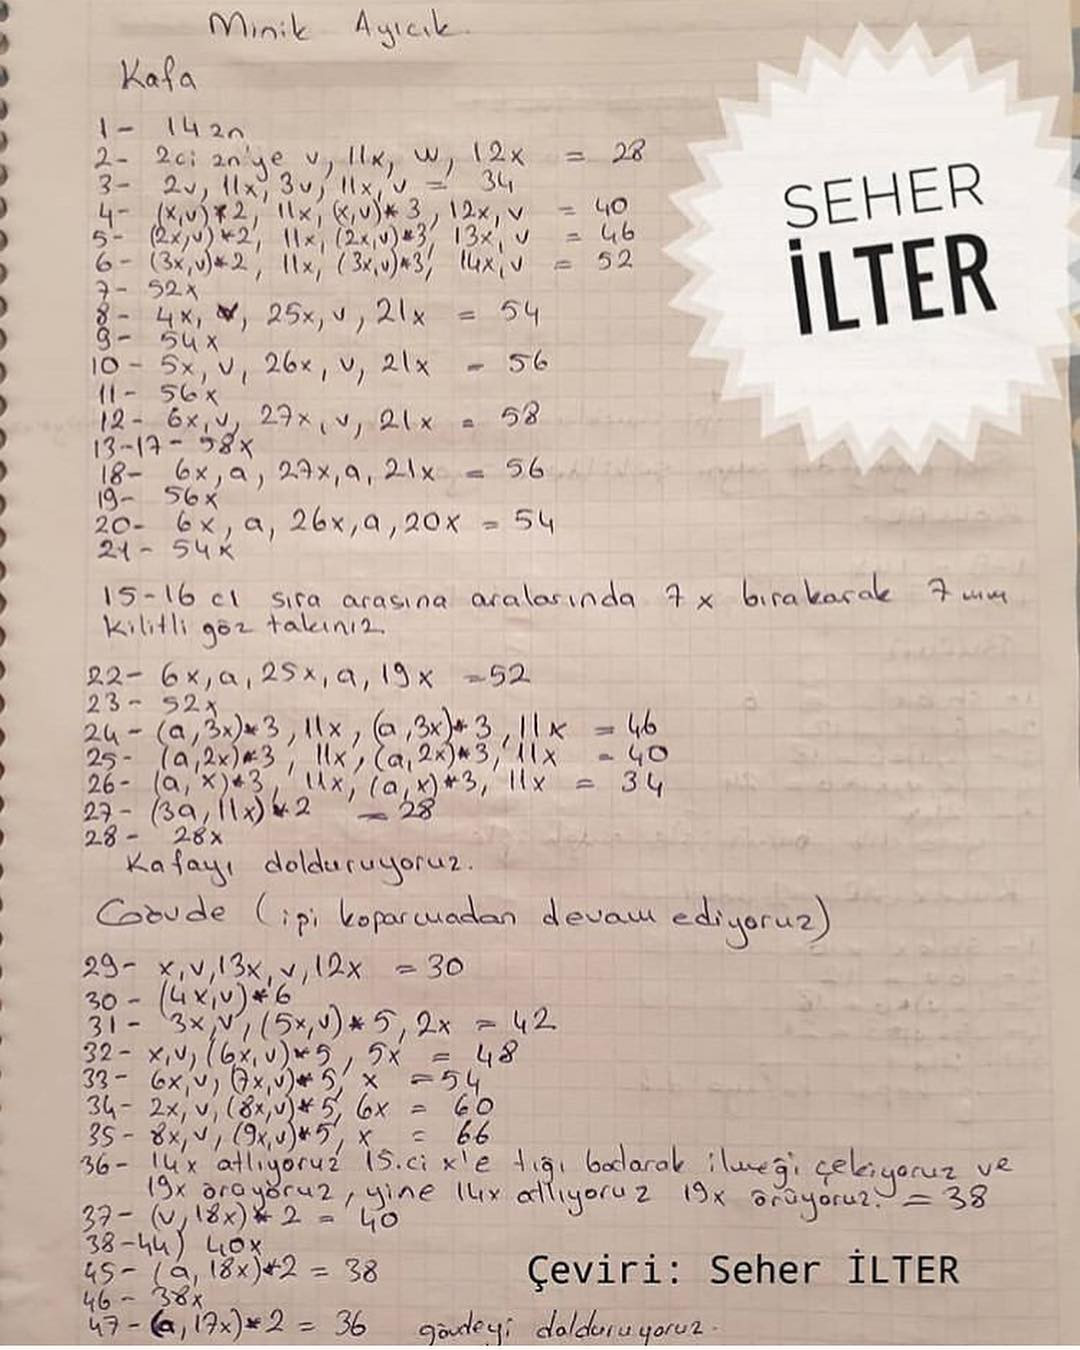 Minik Ayıcık
Kafa
1- 14 zn
2- 2ci zn'ye v, 11x, w, 12x = 28
3- 2v, 11x, 3v, 11x, v = 34
4- (x,v)*2, 11x, (x,v)*3, 12x, v = 40
5- (2x,v)*2, 11x, (2x,v)*3, 13x, v = 46
6- (3x,v)*2, 11x, (3x,v)*3, 14x, v = 52
7- 52x
8- 4x, v, 25x, v, 21x = 54
9- 54x
10- 5x, v, 26x, v, 21x = 56
11- 56x
12- 6x, v, 27x, v, 21x = 58
13-17- 58x
18- 6x, a, 27x, a, 21x = 56
19- 56x
20- 6x, a, 26x, a, 20x = 54
21- 54x
15-16 cı sıra arasına aralarında 7 x bırakarak 7 mm
kilitli göz takınız
22- 6x, a, 25x, a, 19x = 52
23- 52x
24- (a, 3x)*3, 11x, (a, 3x)*3, 11x = 46
25- (a, 2x)*3, 11x, (a, 2x)*3, 11x = 40
26- (a, x)*3, 11x, (a, x)*3, 11x = 34
27- (3a, 11x)*2 = 28
28- 28x
Kafayı dolduruyoruz.
Gövde (ipi koparmadan devam ediyoruz)
29- x, v, 13x, v, 12x = 30
30- (4x, v)*6
31- 3x, v, (5x, v)*5, 2x = 42
32- x, v, (6x, v)*5, 5x = 48
33- 6x, v, (7x, v)*5, x = 54
34- 2x, v, (8x, v)*5, 6x = 60
35- 8x, v, (9x, v)*5, x = 66
36- 14x atlıyoruz 15.ci x'e tığı batarak ilmeği çekiyoruz ve
19x örüyoruz, yine 14x atlıyoruz 19x örüyoruz. = 38
37- (v, 18x)*2 = 40
38-44) 40x
45- (a, 18x)*2 = 38
46- 38x
47- (a, 17x)*2 = 36 gövdeyi dolduruyoruz.
SEHER
İLTER
Çeviri: Seher İLTER